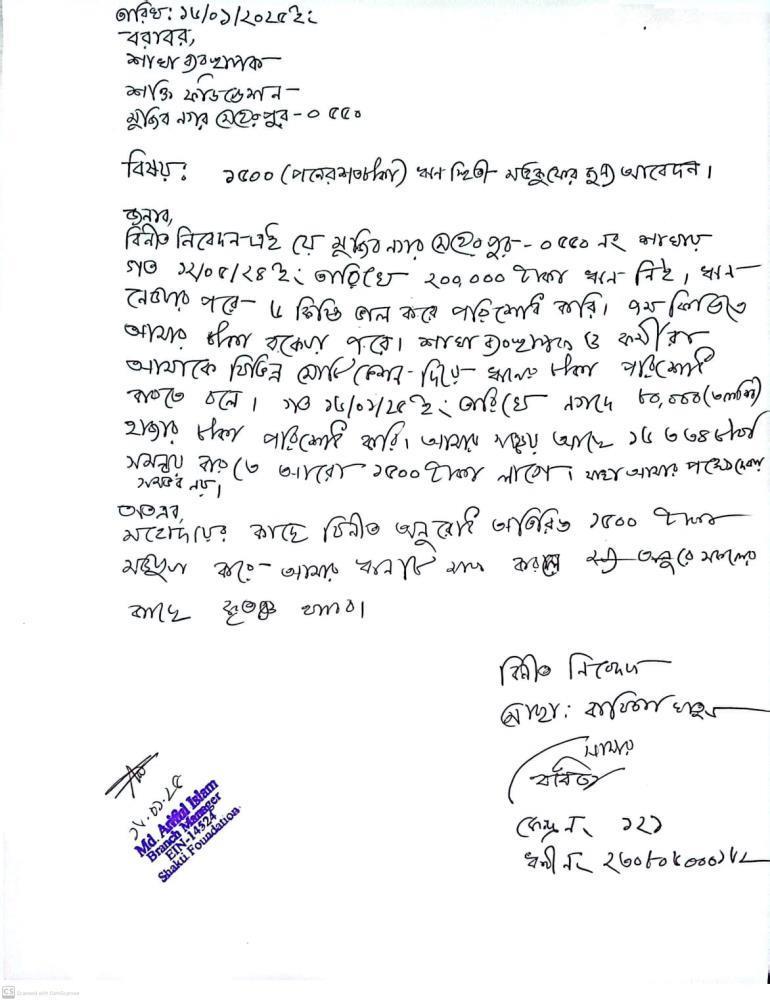 তারিখ: ১৫/০১/২০২৫ ইং
বরাবর,
শাখা ব্যবস্থাপক
শক্তি ফাউন্ডেশন
মুজিব নগর মেহেরপুর - ০৫৫০
বিষয়: ১৫০০ (পনেরশত টাকা) ঋন স্থিতী মওকুফের জন্য আবেদন।
জনাব,
বিনীত নিবেদন এই যে মুজিব নগর মেহেরপুর - ০৫৫০ নং শাখায়
গত ১২/০৫/২৪ ইং তারিখে ২০০,০০০ টাকা ঋন নিই, ঋন
নেওয়ার পরে ৬ কিস্তি ভাল করে পরিশোধ করি। ৭ম কিস্তিতে
আমার টাকা বকেয়া পরে। শাখা ব্যবস্থাপক ও কর্মীরা
আমাকে বিভিন্ন মোটিভেশন দিয়ে ঋনের টাকা পরিশোধ
করতে বলে। গত ১৫/০১/২৫ ইং তারিখে নগদে ৮০,০০০
হাজার টাকা পরিশোধ করি। আমার সঞ্চয় আছে ১৫৩৩৪ টাকা
সমন্বয় করতে আরো ১৫০০ টাকা লাগে। যাহা আমার পক্ষে দেওয়া
সম্ভব নয়।
অতএব,
মহোদয়ের কাছে বিনীত অনুরোধ অতিরিক্ত ১৫০০ টাকা
মওকুফ করে আমার ঋনটি করলে
কাছে কৃতজ্ঞ থাকব।
বিনীত নিবেদক
মোছা: ববিতা খাতুন
ববিতা
কেন্দ্র নং ১২১
ঋনী নং
Md. Ariful Islam
Branch Manager
EIN-14524
Shakti Foundation
CS Scanned with CamScanner